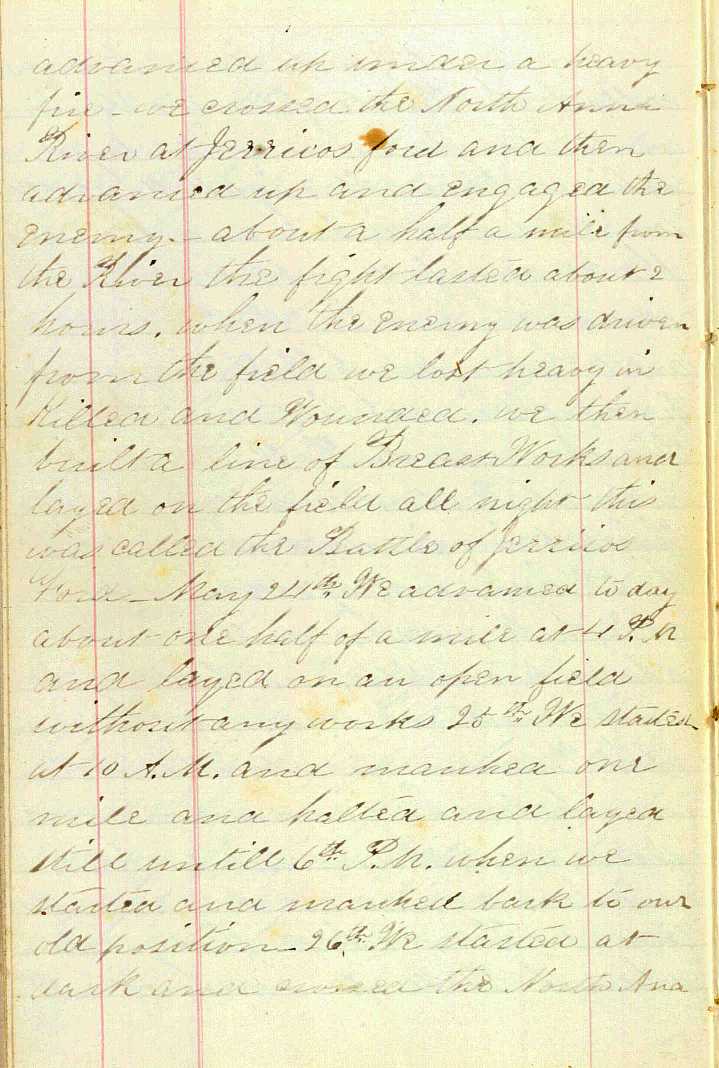 advanced up under a heavy
fire - we crossed the North Anna
River at Jerricos ford and then
advanced up and engaged the
enemy - about a half a mile from
the River the fight lasted about 2
hours. when the enemy was driven
from the field we lost heavy in
Killed and Wounded. we then
built a line of Breast Works and
layed on the field all night this
was called the Battle of Jerricos
Ford - May 24th We advanced to day
about one half of a mile at 4 P.M
and layed on an open field
without any works 25th We started
at 10 A.M. and marched one
mile and halted and layed
still untill 6th P.M. when we
started and marched back to our
old position - 26th We started at
dark and crossed the North Ana